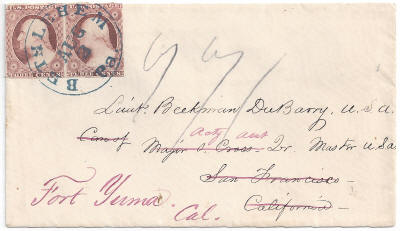 U.S. POSTAGE U.S. POSTAGE
THREE CENTS THREE CENTS
Lieut. Beekman DuBarry, U.S.A.
Care of Major O. Cross. Qr. Master USA
actg asst
San Francisco
California
Fort Yuma
Cal.